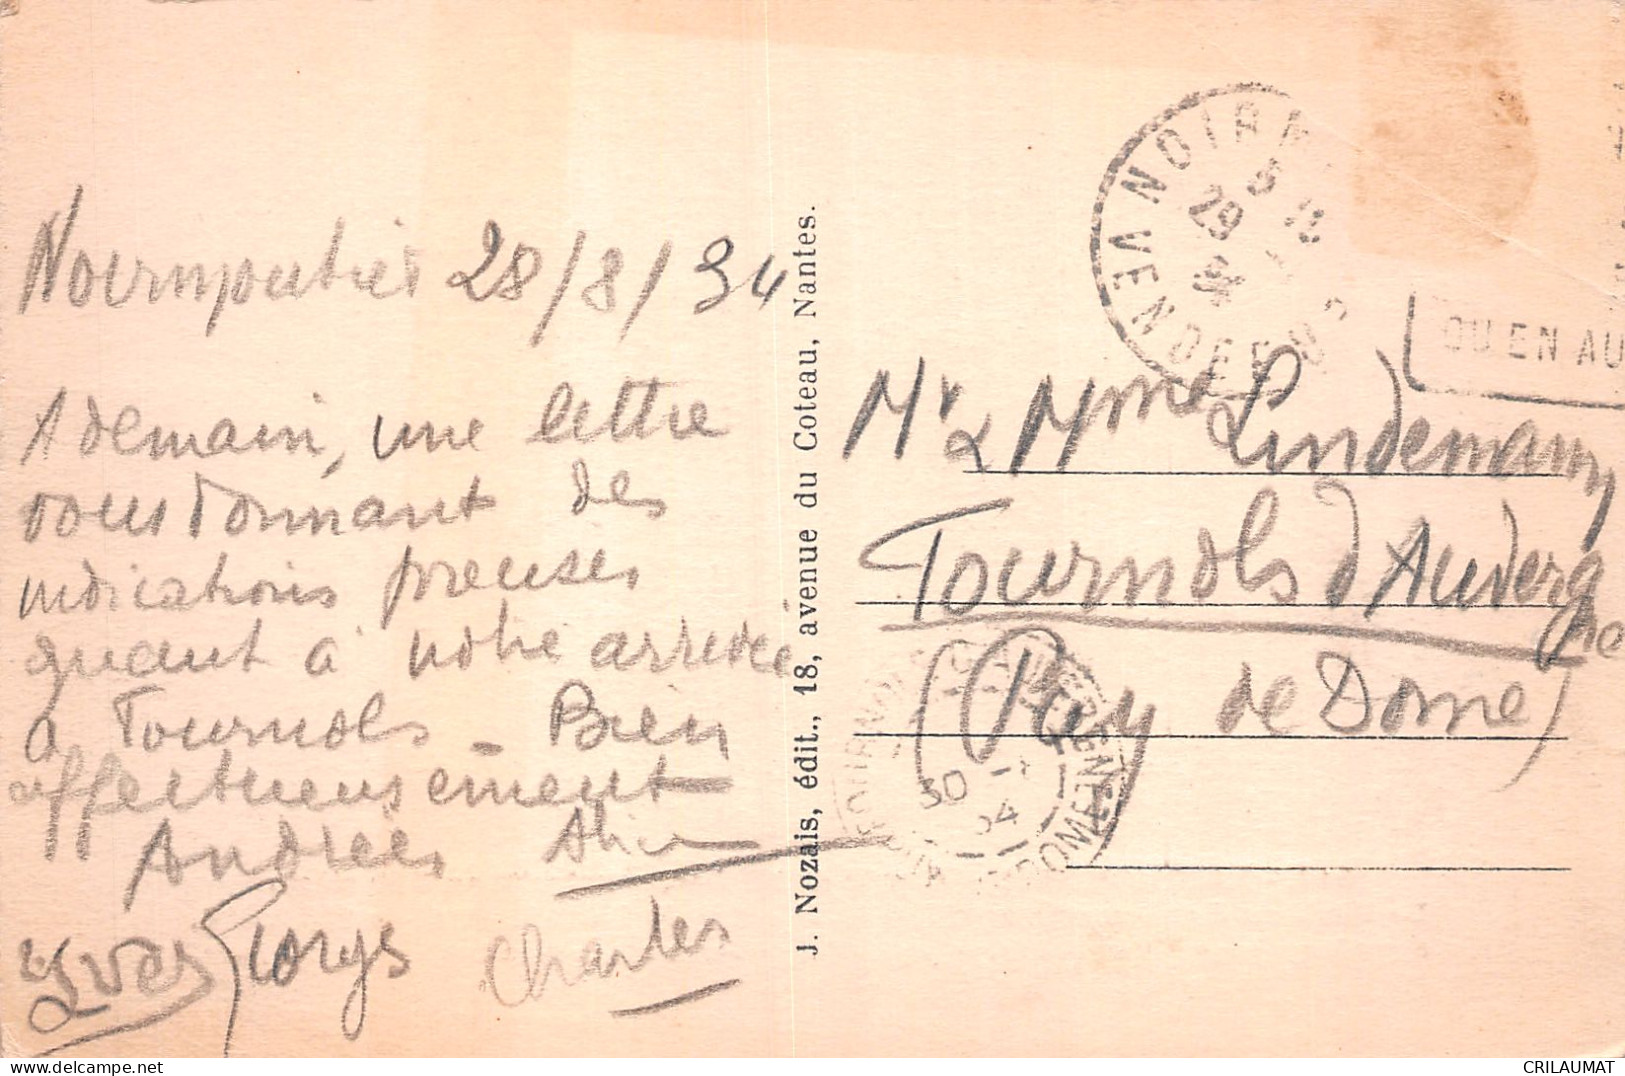 Noirmoutier 28/8/34
A demain, une lettre
vous donnant des
indications precises
quant à notre arrivée
à Tournols. Bien
affectueusement
Andrée, Alice
Yves Georges Charles
J. Nozais, édit., 18, avenue du Coteau, Nantes.
NOIRM
VENDEE
29
34
OU EN AU
Mr & Mme Lindemann
Tournols d'Auvergne
(Puy de Dome)
30
34
CRILAUMAT